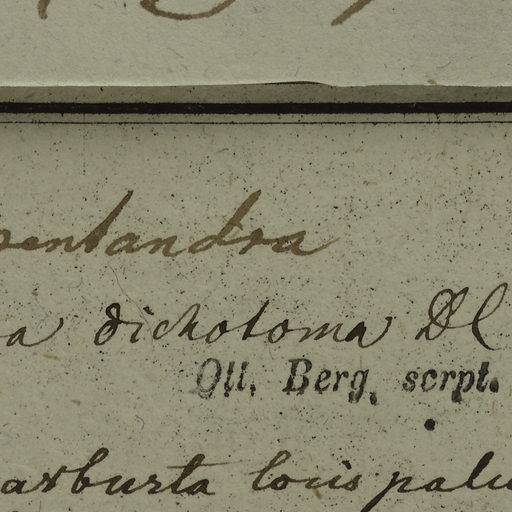 pentandra
a dichotoma DC
Ott. Berg. scrpt.
arburta locis palu